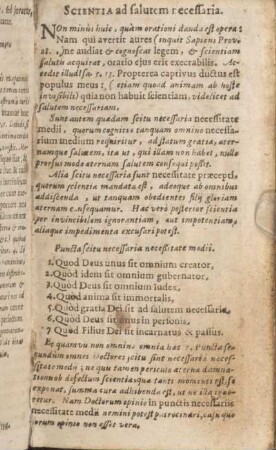 SCIENTIA ad salutem necessaria.
NOn minùs huic, quàm orationi danda est opera:
Nam qui avertit aures (inquit Sapiens Prover.
28. ) ne audiat & cognoscat legem, & scientiam
salutis acquirat, oratio ejus erit execrabilis. Ac-
cedit illud Isa. 5. 13. Propterea captivus ductus est
populus meus, ( etiam quoad animam ab hoste
invisibili) quia non habuit scientiam, videlicet ad
salutem necessariam.
Sunt autem quædam scitu necessaria necessitate
medii, quorum cognitio tanquam omnino necessa-
rium medium requiritur, ad statum gratiæ, ater-
namque salutem, ita ut, qui illam non habet, nullo
prorsus modo æternam salutem consequi possit.
Alia scitu necessaria sunt necessitate præcepti,
quorum scientia mandata est, adeoque ab omnibus
addiscenda, ut tanquam obedientes filii gloriam
æternam consequamur. Hæc verò posterior scientia
per invincibilem ignorantiam, aut impotentiam,
aliaque impedimenta excusari potest.
Puncta scitu necessaria necessitate medii.
1. Quod Deus unus sit omnium creator,
2. Quod idem sit omnium gubernator,
3. Quod Deus sit omnium Iudex,
4. Quod anima sit immortalis,
5. Quod gratia Dei sit ad salutem necessaria,
6. Quod Deus sit trinus in personis,
7. Quod Filius Dei sit incarnatus & passus.
Et quamvis non omnino omnia hæc 7. Puncta se-
cundum omnes Doctores scitu sint necessaria neces-
sitate medii; ne quis tamen periculo æternæ damna-
tionis ob defectum scientiæ tanti momenti
exponat, summa cura adhibenda est, ut ne illa igno-
rentur. Nam Doctorum opinio in punctis necessariis
necessitate medii nemini potest patrocinari, casu quo
eorum opinio non esset vera.